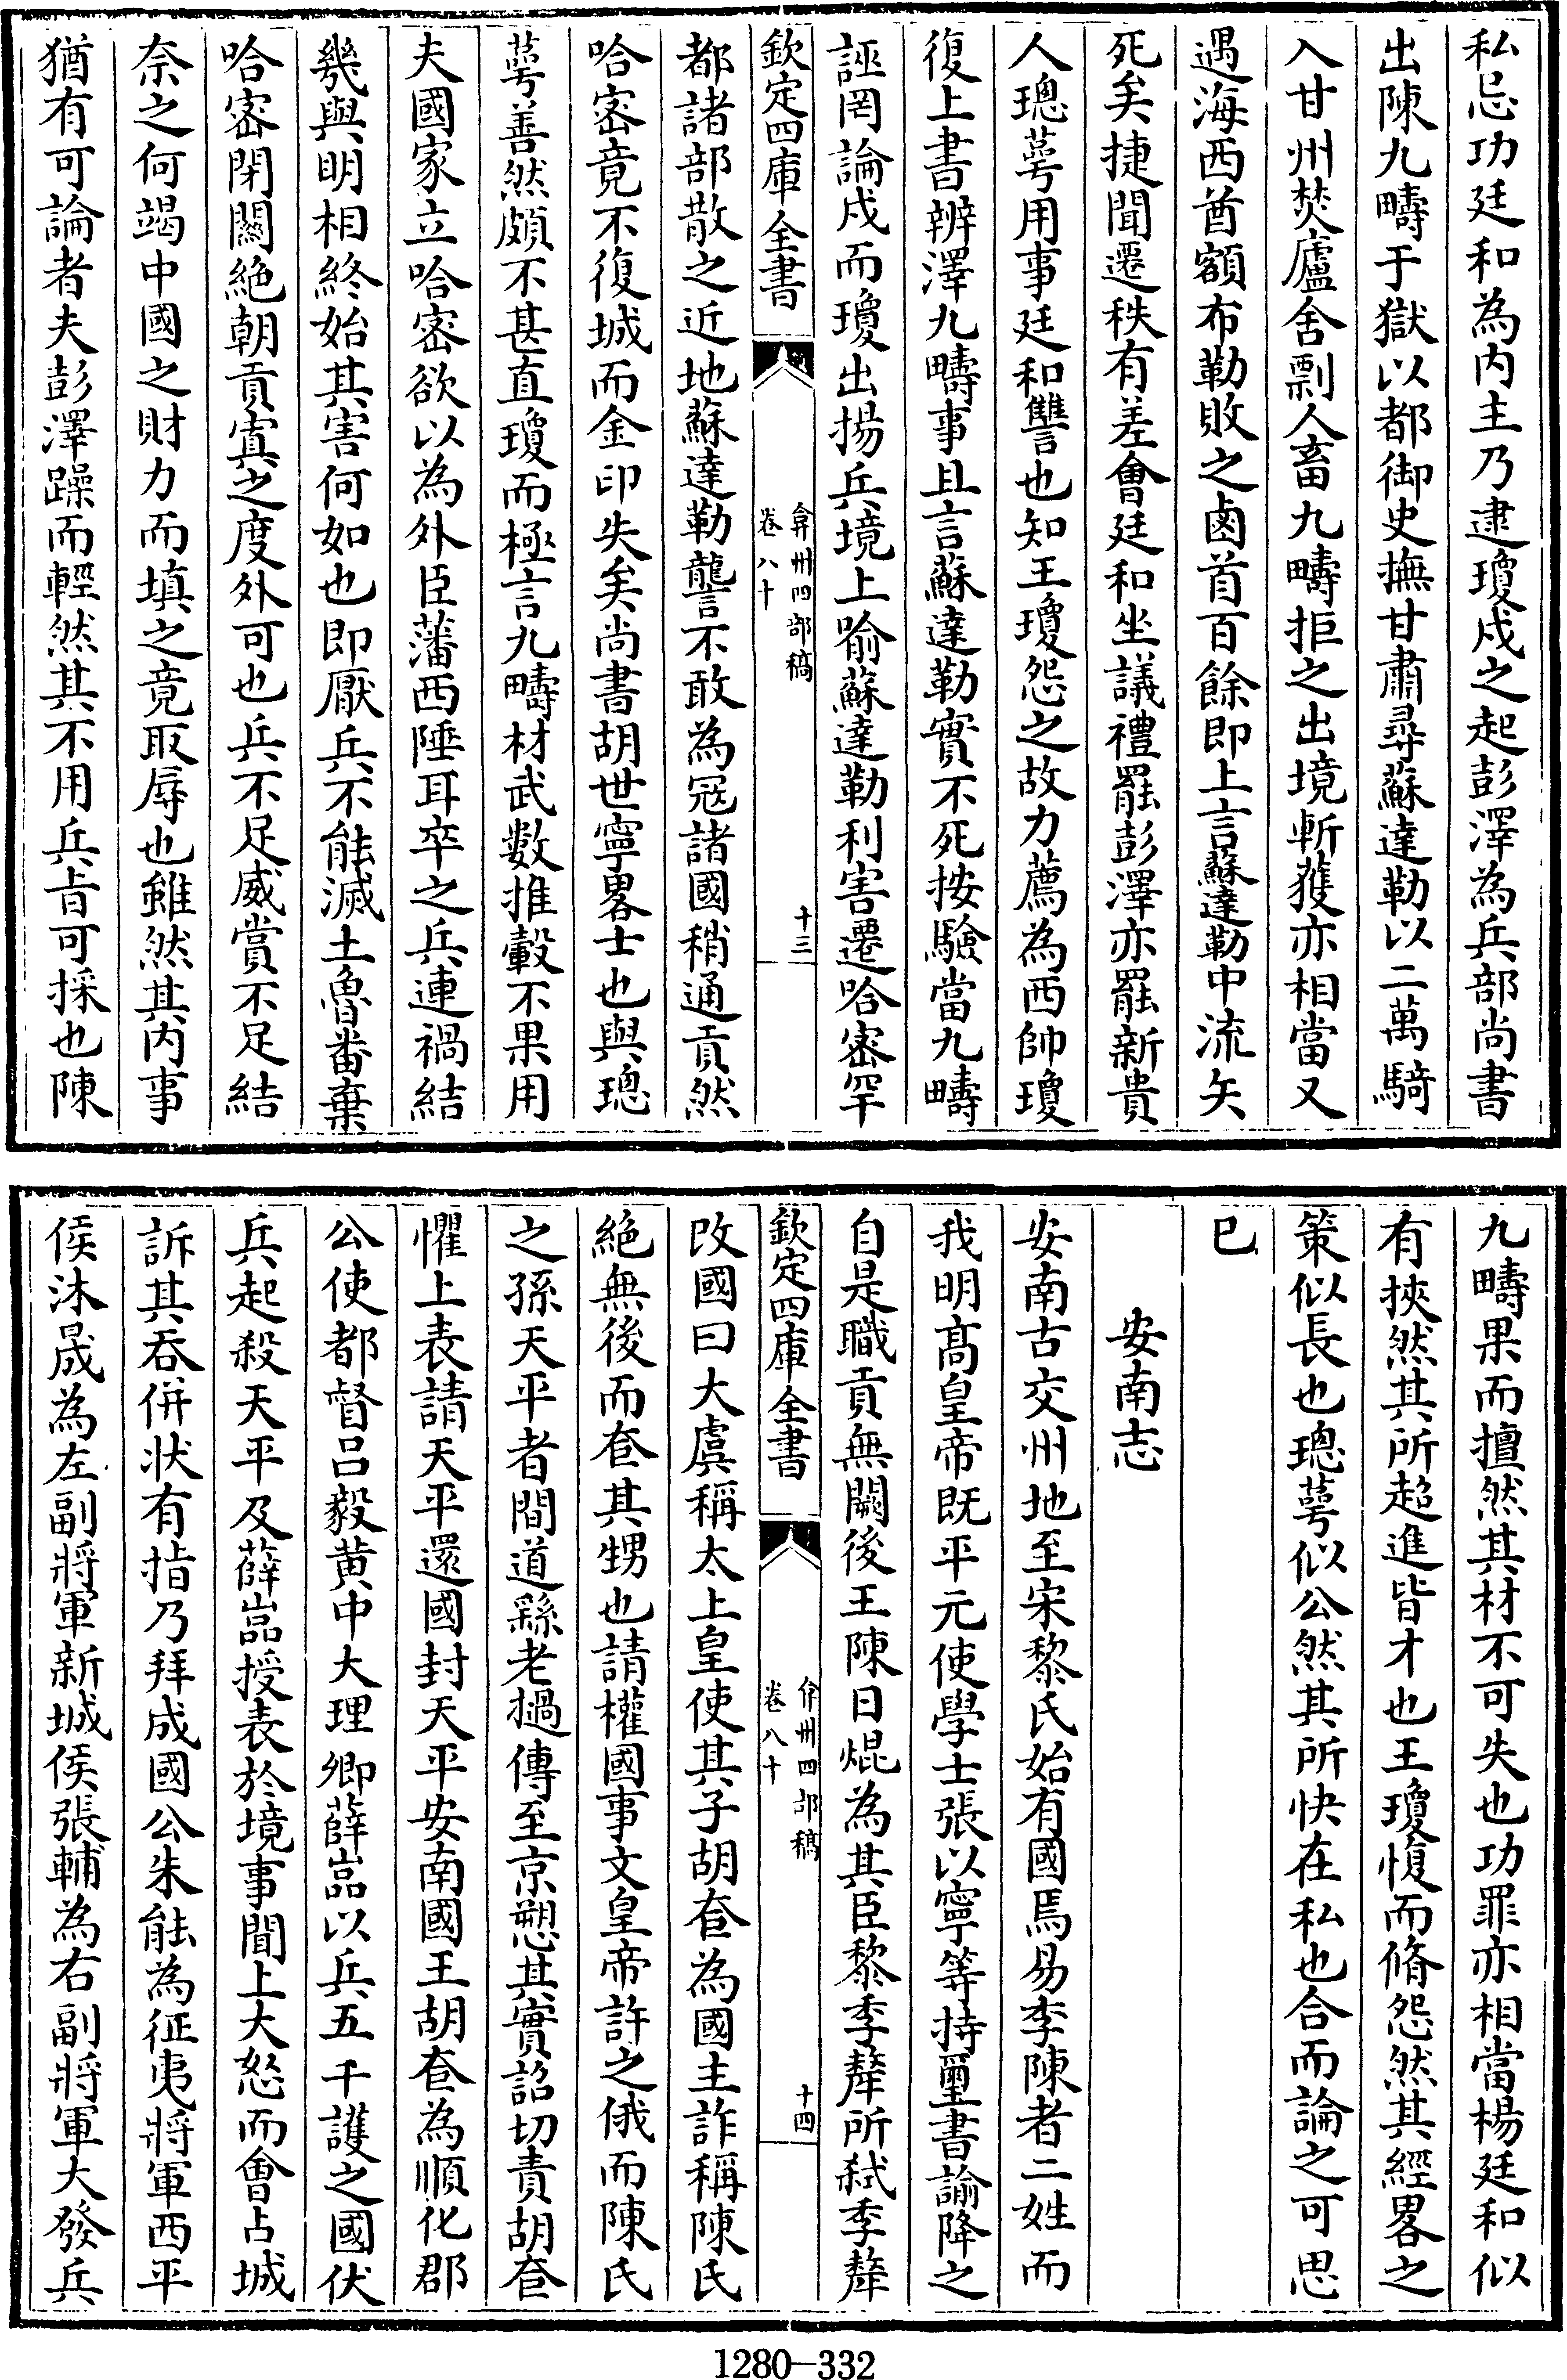 私忌功廷和為内主乃逮瓊戍之起彭澤為兵部尚書
出陳九疇于獄以都御史撫甘肅尋蘇達勒以二萬騎
入甘州焚廬舍剽人畜九疇拒之出境斬獲亦相當又
遇海西酋額布勒敗之鹵首百餘即上言蘇達勒中流矢
死矣捷聞遷秩有差會廷和坐議禮罷彭澤亦罷新貴
人璁萼用事廷和讐也知王瓊怨之故力薦為西帥瓊
復上書辨澤九疇事且言蘇達勒實不死按驗當九疇
誣罔論戍而瓊出揚兵境上喻蘇達勒利害遷哈密罕
欽定四庫全書
弇州四部稿
卷八十
十三
都諸部散之近地蘇達勒讋不敢為冦諸國稍通貢然
哈密竟不復城而金印失矣尚書胡世寧畧士也與璁
萼善然頗不甚直瓊而極言九疇材武數推轂不果用
夫國家立哈密欲以為外臣藩西陲耳卒之兵連禍結
㡬與明相終始其害何如也即厭兵不能滅土魯番棄
哈密閉關絶朝貢寘之度外可也兵不足威賞不足結
奈之何竭中國之財力而填之竟取辱也雖然其内事
猶有可論者夫彭澤躁而輕然其不用兵㫖可採也陳
九疇果而擅然其材不可失也功罪亦相當楊廷和似
有挾然其所超進皆才也王瓊愎而脩怨然其經畧之
策似長也璁萼似公然其所快在私也合而論之可思
已
安南志
安南古交州地至宋黎氏始有國焉易李陳者二姓而
我明髙皇帝既平元使學士張以寧等持璽書諭降之
自是職貢無闕後王陳日焜為其臣黎季犛所弑季犛
欽定四庫全書
弇州四部稿
卷八十
十四
改國曰大虞稱太上皇使其子胡㚎為國主詐稱陳氏
絶無後而㚎其甥也請權國事文皇帝許之俄而陳氏
之孫天平者間道繇老撾傳至京愬其實詔切責胡㚎
懼上表請天平還國封天平安南國王胡㚎為順化郡
公使都督吕毅黄中大理卿薛嵓以兵五千護之國伏
兵起殺天平及薛嵓授表於境事聞上大怒而會占城
訴其吞併状有指乃拜成國公朱能為征夷將軍西平
侯沐晟為左副將軍新城侯張輔為右副將軍大發兵
1280-332